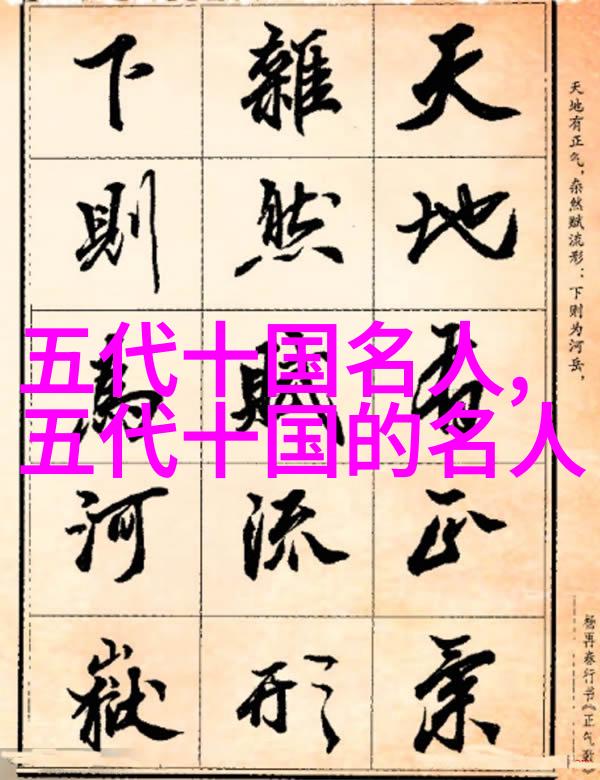 天地有正氣
雜然賦流形
下則為河嶽
天地有正气,杂然赋流形:下则为河岳,
杨再春行书《正气歌》
五代十国名人,
五代十国的名人